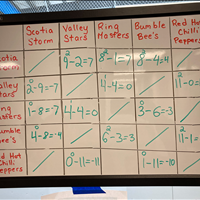 Scotia Storm Valley Stars Ring Hoppers Bumble Bee's Red Hot Chilli Peppers
Scotia Storm 2 9-2=7 8-1=7 8-4=4
Valley Stars 0 2-9=-7 4-4=0 11-0=
Ring Hoppers 0 1-8=-7 4-4=0 0 3-6=-3
Bumble Bee's 4-8=-4 2 6-3=3 2 11-1=
Red Hot Chilli Peppers 0 0-11=-11 0 1-11=-10